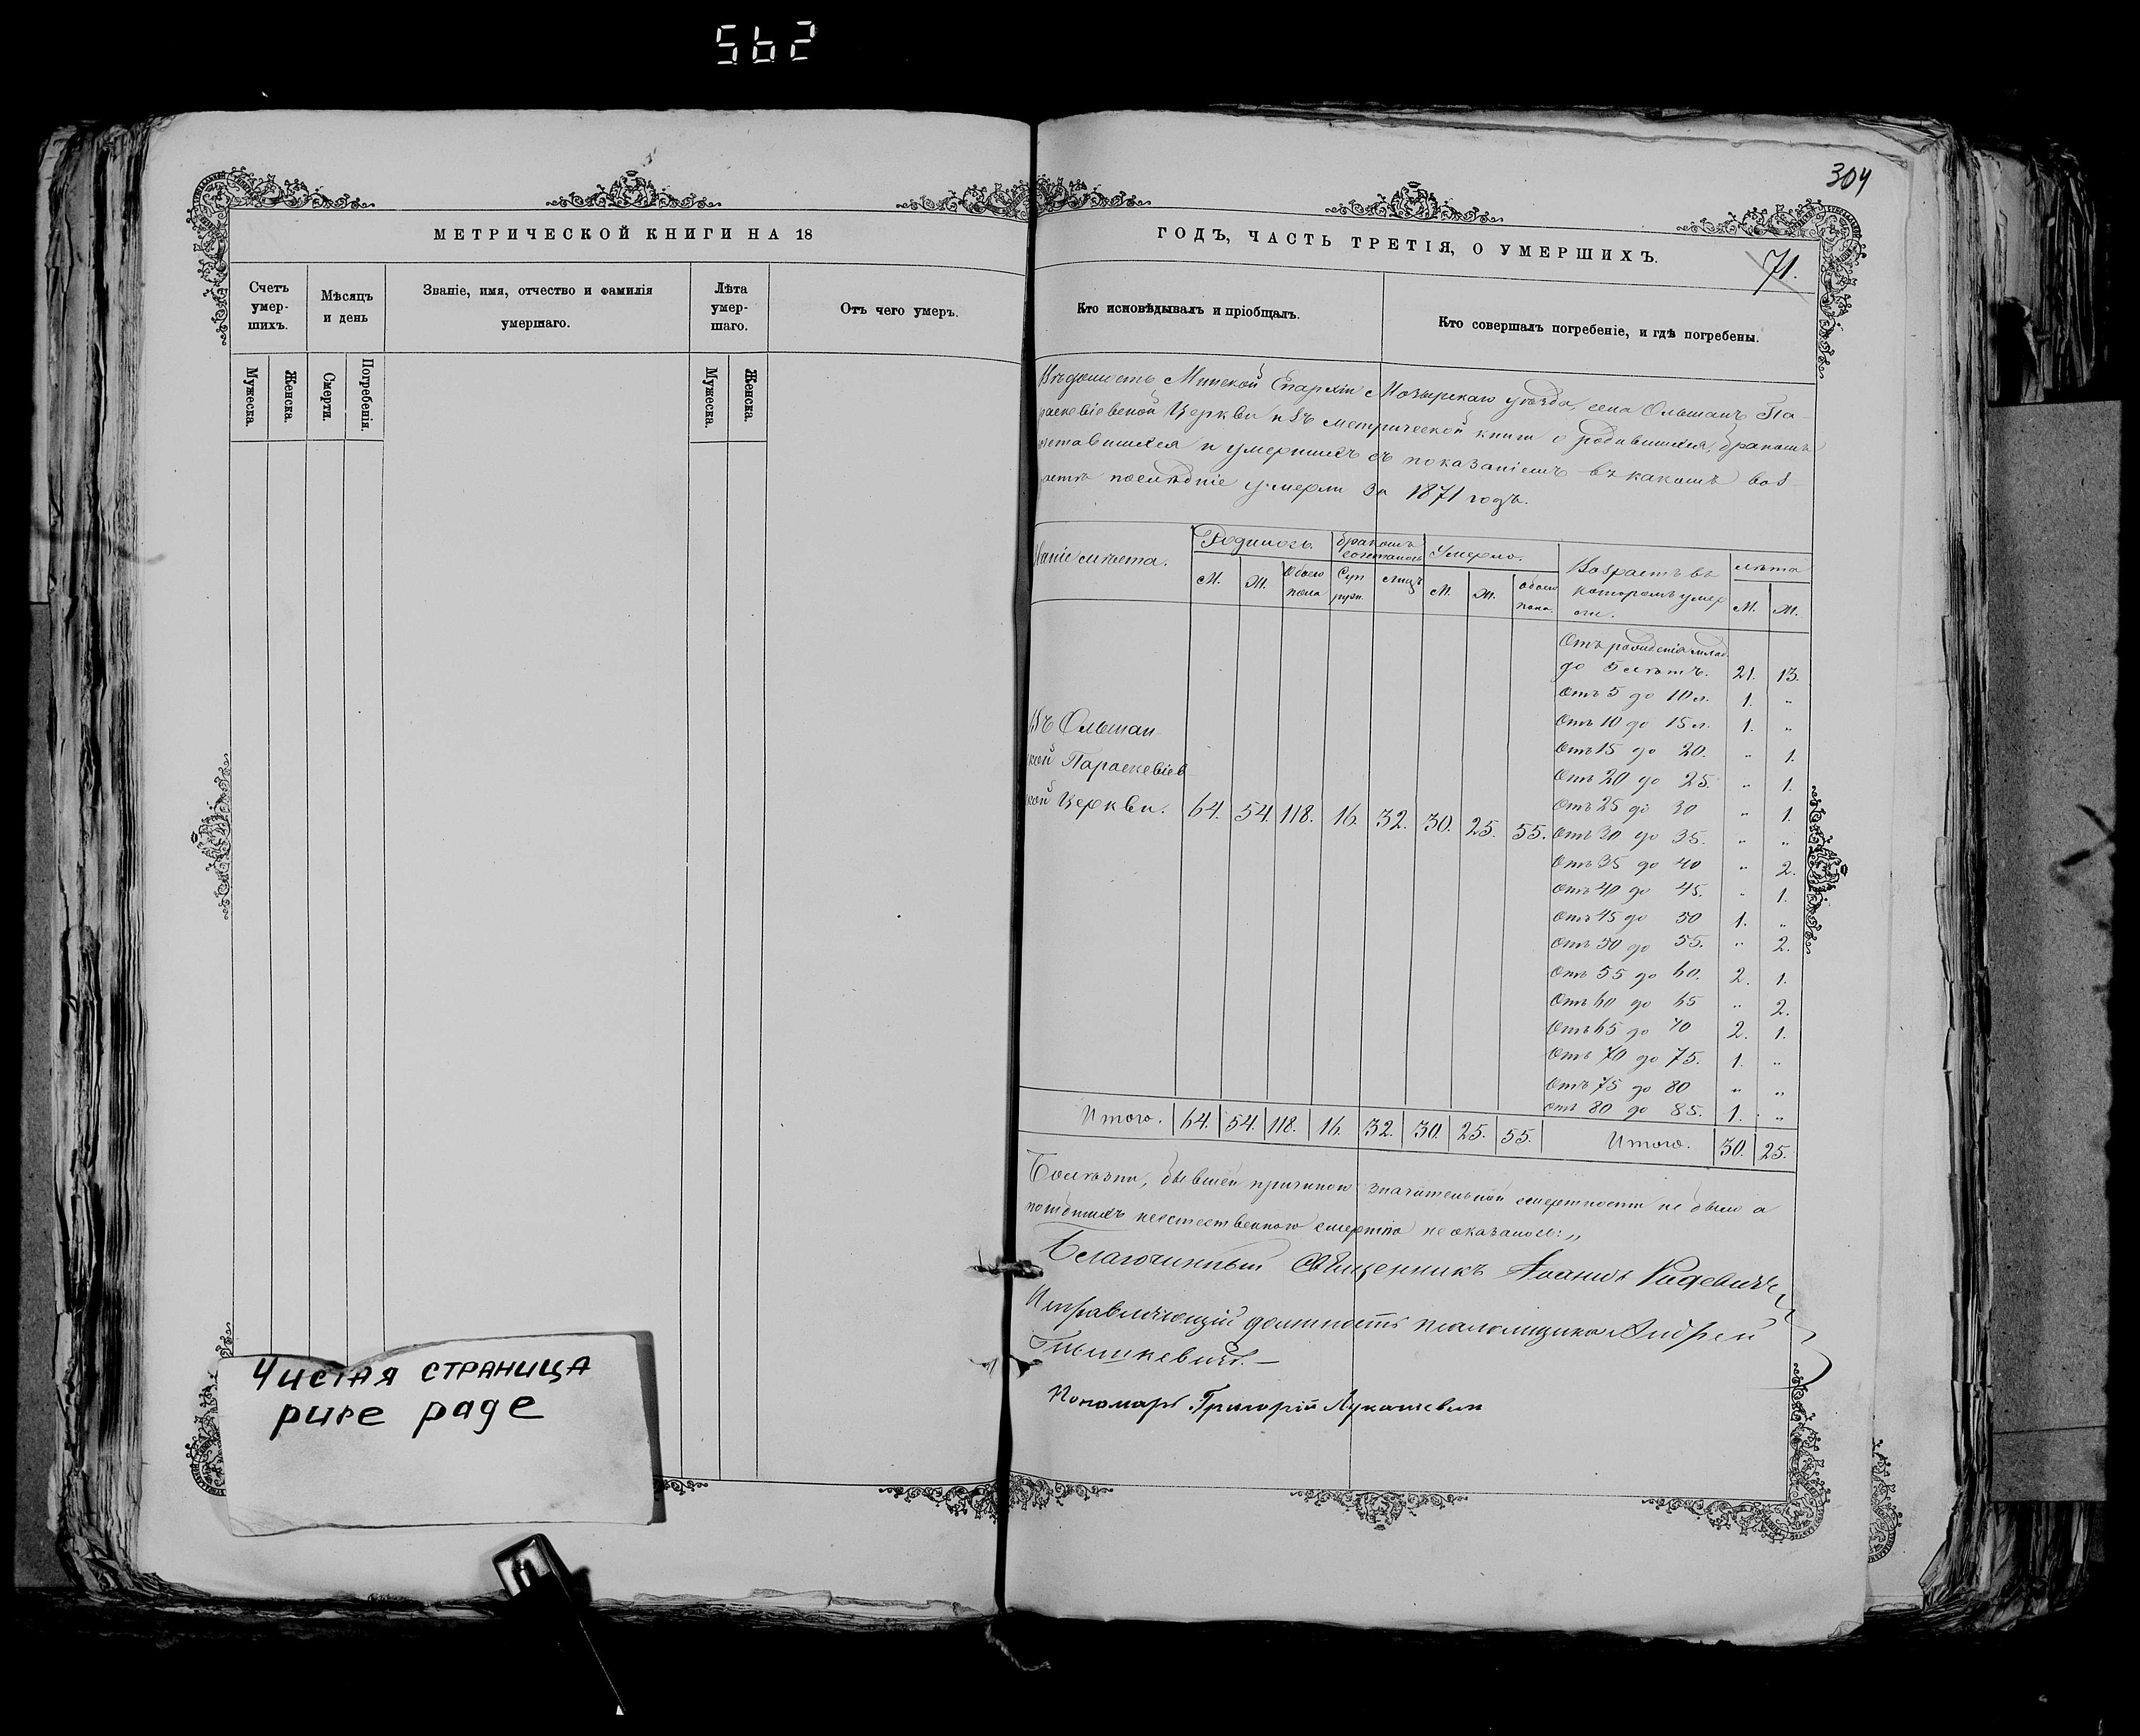 562
304
МЕТРИЧЕСКОЙ КНИГИ НА 18
ГОДЪ, ЧАСТЬ ТРЕТІЯ, О УМЕРШИХЪ.
71.
Счетъ умер-шихъ.
Мѣсяцъ и день
Званіе, имя, отчество и фамилія
умершаго.
Лѣта умер-шаго.
Отъ чего умеръ.
Мужеска.
Женска.
Смерти.
Погребенія.
Мужеска.
Женска.
Кто исповѣдывалъ и пріобщалъ.
Кто совершалъ погребеніе, и гдѣ погребены.
Вѣдомость Минской Епархіи Мозырскаго уѣзда, села Ольшанъ Па-
раскевіевской Церкви изъ метрической книги о родившихся, бракомъ
сочетавшихся и умершихъ съ показаніемъ въ какомъ воз-
растѣ послѣдніе умерли за 1871 годъ.
Родилось. Бракомъ сочеталось Умерло. Возрастъ въ которомъ умер ли. лѣта
М. Ж. Обоего пола Суп руж. лицъ М. Ж. Обоего пола. М. Ж.
Отъ рожденія млад.
до 5 лѣтъ. 21. 13.
Отъ 5 до 10 л. 1. „
Отъ 10 до 15 л. 1. „
Отъ 15 до 20. „ 1.
Отъ 20 до 25. „ 1.
Отъ 25 до 30 „ 1.
Отъ 30 до 35. „ „
Отъ 35 до 40 „ 2.
Отъ 40 до 45. „ 1.
Отъ 45 до 50 1. „
Отъ 50 до 55. „ 2.
Отъ 55 до 60. 2. 1.
Отъ 60 до 65 „ 2.
Отъ 65 до 70 2. 1.
Отъ 70 до 75. 1. „
Отъ 75 до 80 „ „
Отъ 80 до 85. 1. „
Въ Ольшан
ской Параскевіев
ской Церкви. 64. 54. 118. 16. 32. 30. 25. 55.
Итого. 64. 54. 118. 16. 32. 30. 25. 55. Итого. 30. 25.
Болѣзни, бывшей причиною значительной смертности не было а
погибшихъ неестественною смертію не оказалось „
Благочинный Священникъ Іоаннъ
Исправляющій должность псаломщика Андрей
Пономарь Григорій Лукашевич
Чистая страница
pure page